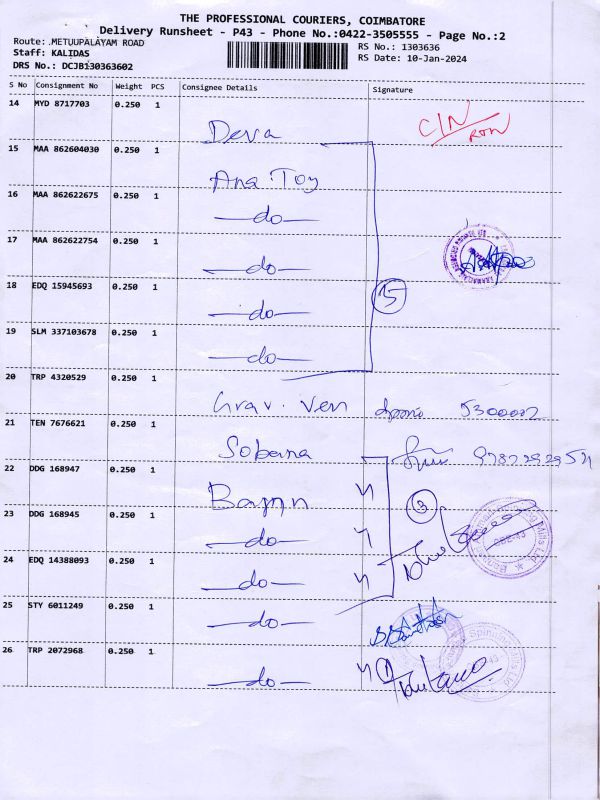 THE PROFESSIONAL COURIERS, COIMBATORE
Delivery Runsheet - P43 - Phone No.:0422-3505555 - Page No.:2
Route: METUUPALAYAM ROAD
RS No.: 1303636
Staff: KALIDAS
RS Date: 10-Jan-2024
DRS No.: DCJB130363602
S No Consignment No Weight PCS Consignee Details Signature
14 MYD 8717703 0.250 1 Deva CIN/RTN
15 MAA 862604030 0.250 1 Ana Toy
16 MAA 862622675 0.250 1 —do—
17 MAA 862622754 0.250 1 —do—
18 EDQ 15945693 0.250 1 —do— 5
19 SLM 337103678 0.250 1 —do—
20 TRP 4320529 0.250 1 Grav. Ven
21 TEN 7676621 0.250 1 Sobana
22 DDG 168947 0.250 1 Bannn
23 DDG 168945 0.250 1 —do— 3
24 EDQ 14388093 0.250 1 —do—
25 STY 6011249 0.250 1 —do—
26 TRP 2072968 0.250 1 —do— 1